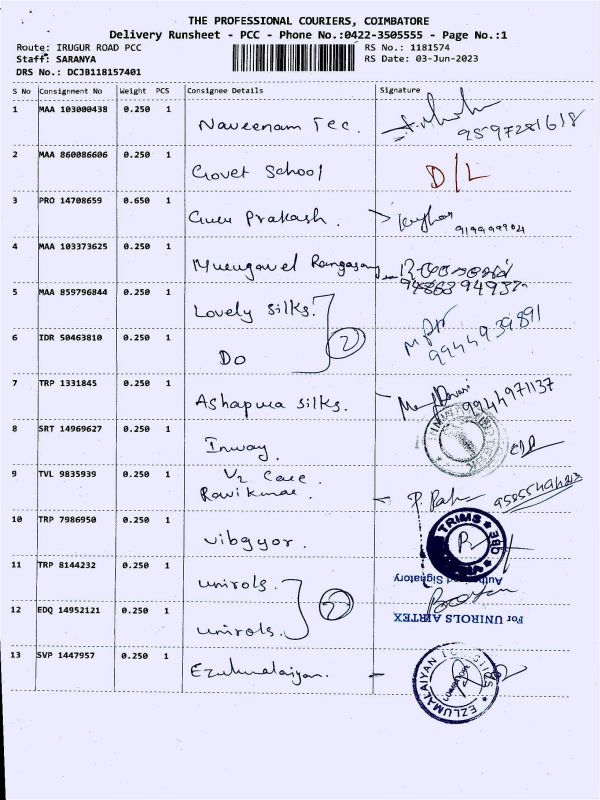 THE PROFESSIONAL COURIERS, COIMBATORE
Delivery Runsheet - PCC - Phone No.:0422-3505555 - Page No.:1
Route: IRUGUR ROAD PCC
RS No.: 1181574
Staff: SARANYA
RS Date: 03-Jun-2023
DRS No.: DCJB118157401
S No Consignment No Weight PCS Consignee Details Signature
1 MAA 103000438 0.250 1 Naveenam Tec.
9597281618
2 MAA 860086606 0.250 1 Govet School D/L
3 PRO 14708659 0.650 1 Guru Prakash.
4 MAA 103373625 0.250 1 Murugavel Rangasamy
9486394937
5 MAA 859796844 0.250 1 Lovely silks.
2
6 IDR 50463810 0.250 1 Do
9944939891
7 TRP 1331845 0.250 1 Ashapura silks.
9944971137
8 SRT 14969627 0.250 1 Inway.
9 TVL 9835939 0.250 1 V2 Care.
Ravikumar.
10 TRP 7986950 0.250 1 Vibgyor.
TRIMS
11 TRP 8144232 0.250 1 unirols.
Authorised Signatory
2
12 EDQ 14952121 0.250 1 unirols.
For UNIROLS AIRTEX
13 SVP 1447957 0.250 1 Ezulumalaiyan.
EZLUMALAIYAN